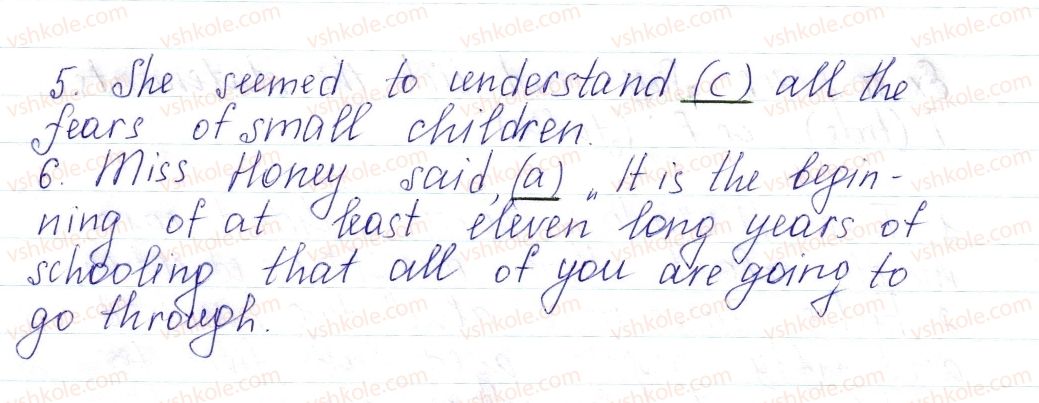 5. She seemed to understand (c) all the
fears of small children.
6. Miss Honey said, (a) „ It is the begin-
ning of at least eleven long years of
schooling that all of you are going to
go through.